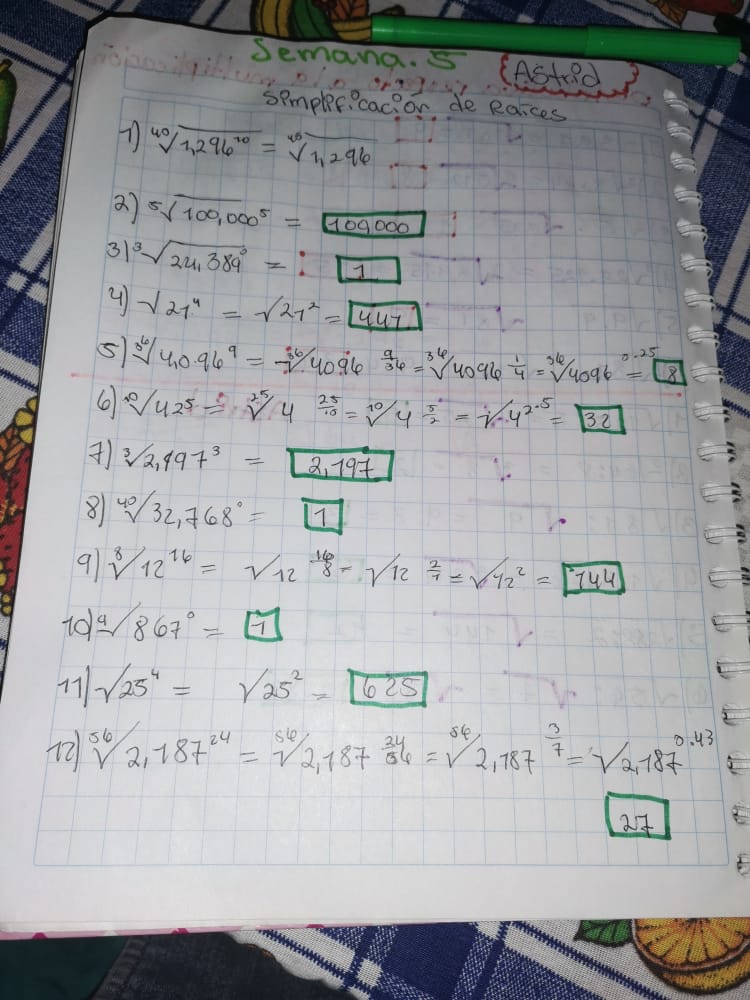 Semana. 5
Astrid
Simplificación de Raíces
1) ⁴⁰√1,296¹⁰ = ⁴⁰√1,296
2) ⁵√100,000⁵ = 100000
3) ³√24,389⁰ = 1
4) √21⁴ = √21² = 441
5) ³⁶√4,096⁹ = ³⁶√4096 9/36 = ³⁶√4096 1/4 = ³⁶√4096 0.25 = 8
6) ¹⁰√4²⁵ = ²⁵√4 25/10 = ¹⁰√4 5/2 = √4².⁵ = 32
7) ³√2,197³ = 2,197
8) ⁴⁰√32,768⁰ = 1
9) ⁸√12¹⁶ = √12 16/8 = √12 2/1 = √12² = 144
10) ⁹√867⁰ = 1
11) √25⁴ = √25² = 625
12) ⁵⁶√2,187²⁴ = ⁵⁶√2,187 24/56 = ⁵⁶√2,187 3/7 = √2,187 0.43
27